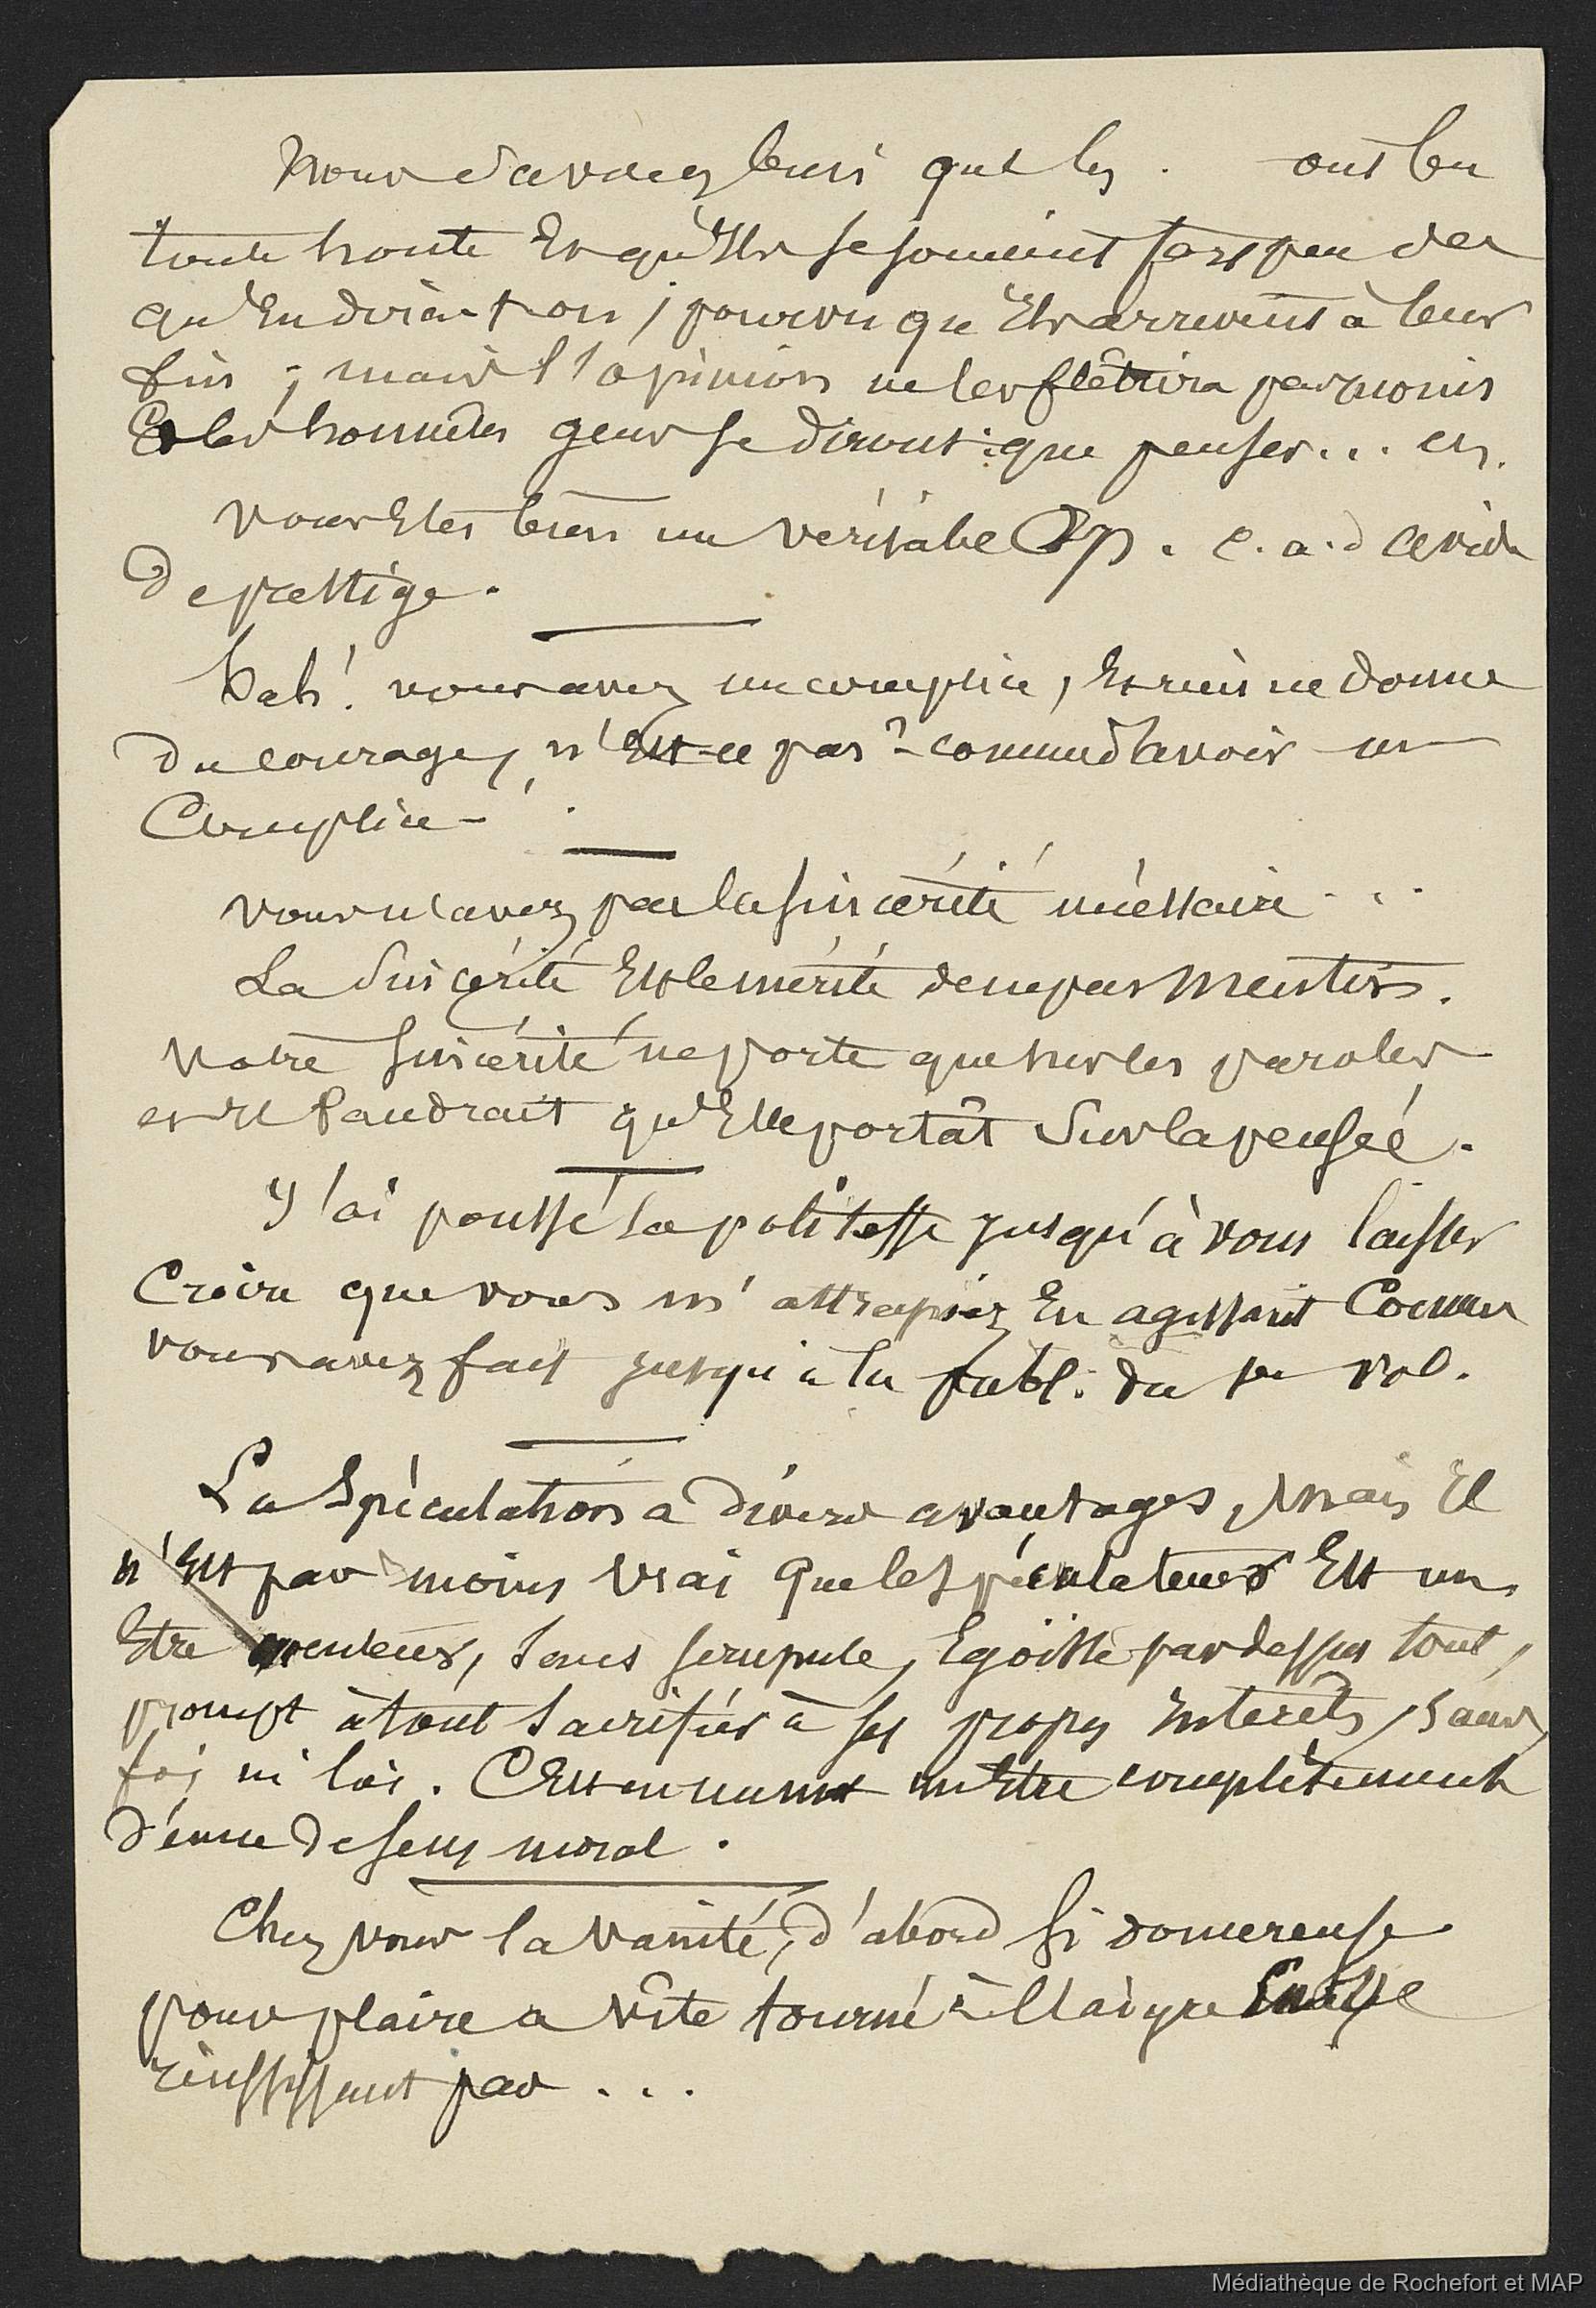 Nous savons bien que les . ont bu
toute honte Et qu'Ils se soucient fort peu des
qu'En dira-t-on, pourvu qu'Ils arrivent à leur
fin ; mais l'opinion ne les flêtrira pas moins
Et les honnêtes gens se diront : que penser... en.
Vous Etes bien un véritable . c. a. d avide
de prestige.
bah ! vous avez un complice, Et rien ne donne
du courage, n'Est-ce pas ? comme d'avoir un
Complice - .
Vous n'avez pas la sincérité nécessaire ...
La Sincérité Est le mérite de ne pas mentir.
Votre sincérité ne porte que sur les paroles
et Il faudrait qu'Elle portât Sur la pensée.
J'ai poussé la politesse jusqu'à vous laisser
Croire que vous m'attrapiez En agissant Comme
vous avez fait jusqu'à la publ. du 1er vol.
La Spéculation a divers avantages, mais Il
n'Est pas moins vrai que le Spéculateur Est un
Etre menteur, sans scrupule, Egoïste par dessus tout,
prompt à tout sacrifier à ses propres Interêts, sans
foi ni loi. C'Est un Etre complètement
dénué de sens moral.
Chez vous la vanité, d'abord si doucereuse
pour plaire a vîte tourné à l'aigre
réussissant pas ...
Médiathèque de Rochefort et MAP